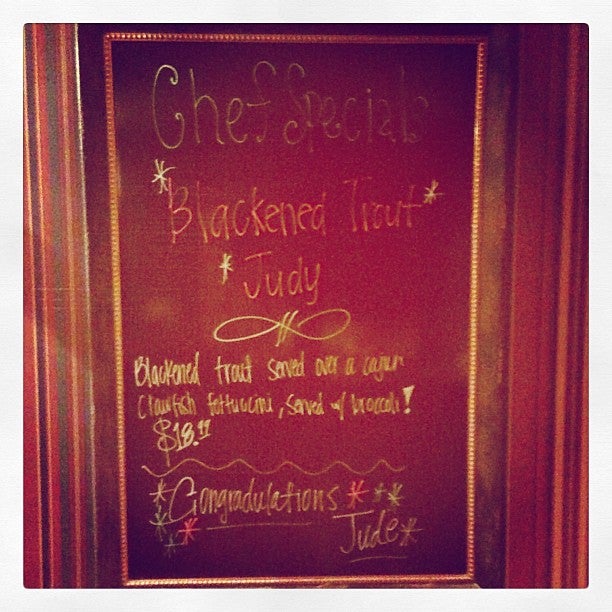 Chef Specials
*Blackened Trout*
*Judy
Blackened trout served over a cajun
Crawfish fettuccini, served w/ broccoli!
$18.99
*Gongradulations***
Jude*